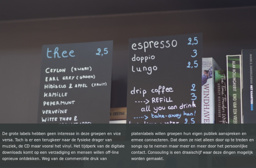 thee 2,5
CEYLON (ZWART)
EARL GREY (ZWART)
HIBISCUS & APPEL
KAMILLE
PEPERMUNT
VERVEINE
WITTE THEE
espresso 2,5
doppio 3
lungo 2,5
drip coffee 2
----> REFILL 3
all you can drink
----> take-away
De grote labels hebben geen interesse in deze groepen en vice
versa. Toch is er een terugkeer naar de fysieke drager van
muziek, de CD maar vooral het vinyl. Het tijdperk van de digitale
downloads komt op een verzadiging en mensen willen off-line
opnieuw ontdekken. Weg van de commerciële druk van
platenlabels willen groepen hun eigen publiek aanspreken en
ermee connecteren. Dat doen ze niet alleen door op te treden en
songs op te nemen maar meer en meer door het persoonlijke
contact. Consouling is een draaischijf waar deze dingen mogelijk
worden gemaakt.